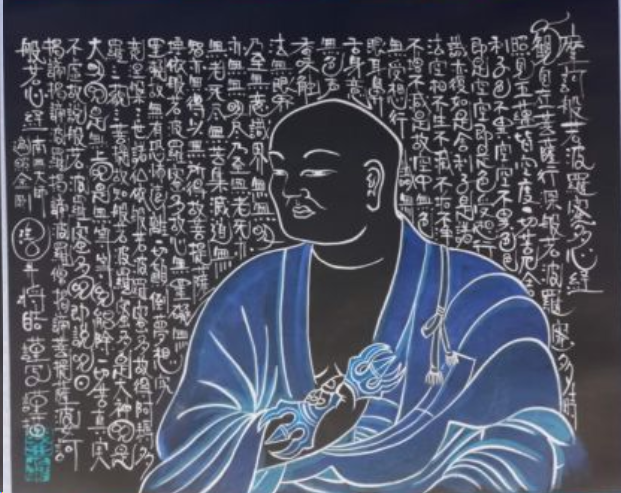 摩訶般若波羅蜜多心経
觀自在菩薩行深般若波羅蜜多時
照見五蘊皆空度一切苦厄舍
利子色不異空空不異色色
即是空空即是色受想行
識亦復如是舍利子是諸
法空相不生不滅不垢不淨
不增不減是故空中無色
無受想行識無
眼耳鼻
舌身意
無色聲
香味觸
法無眼界
乃至無意識界無無明
亦無無明尽乃至無老死
無老死尽無苦集滅道無
智亦無得以無所得故菩提薩
埵依般若波羅蜜多故心無罣礙無
罣礙故無有恐怖遠離一切顛倒夢想究
竟涅槃三世諸仏依般若波羅蜜多故得阿耨多
羅三藐三菩提故知般若波羅蜜多是大神咒是
大明咒是無上咒是無等等咒能除一切苦真実
不虛故說般若波羅蜜多咒即說咒曰
揭諦揭諦波羅揭諦波羅僧揭諦菩提薩婆訶
般若心経
南無大師
遍照金剛